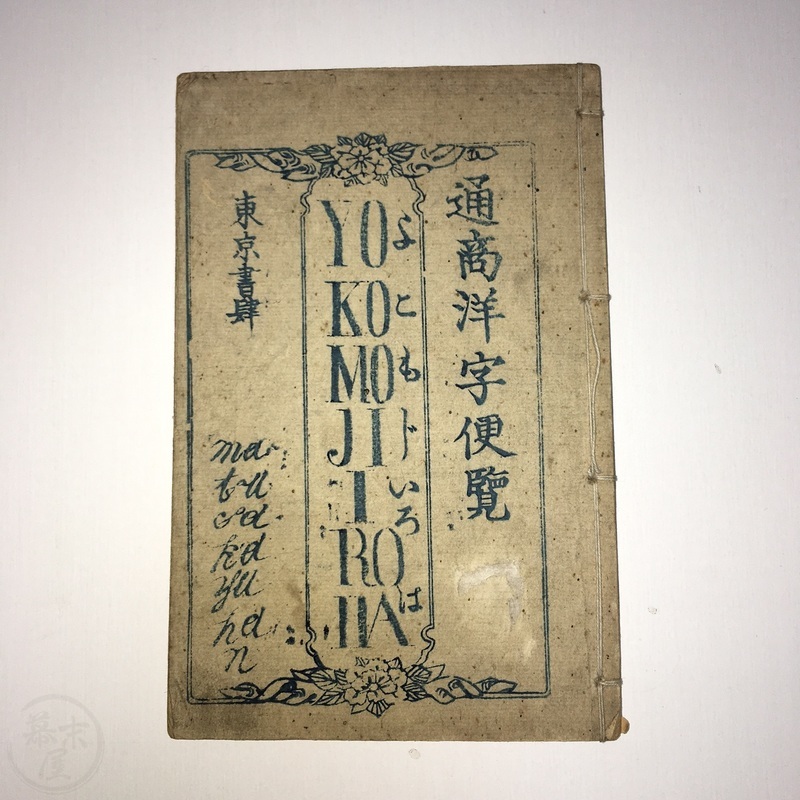 通商洋字便覽
YO
KO
MO
JI
I
RO
HA
よこもじいろは
東京書肆
ma
tu
sa
ka
ha
n
幕末屋